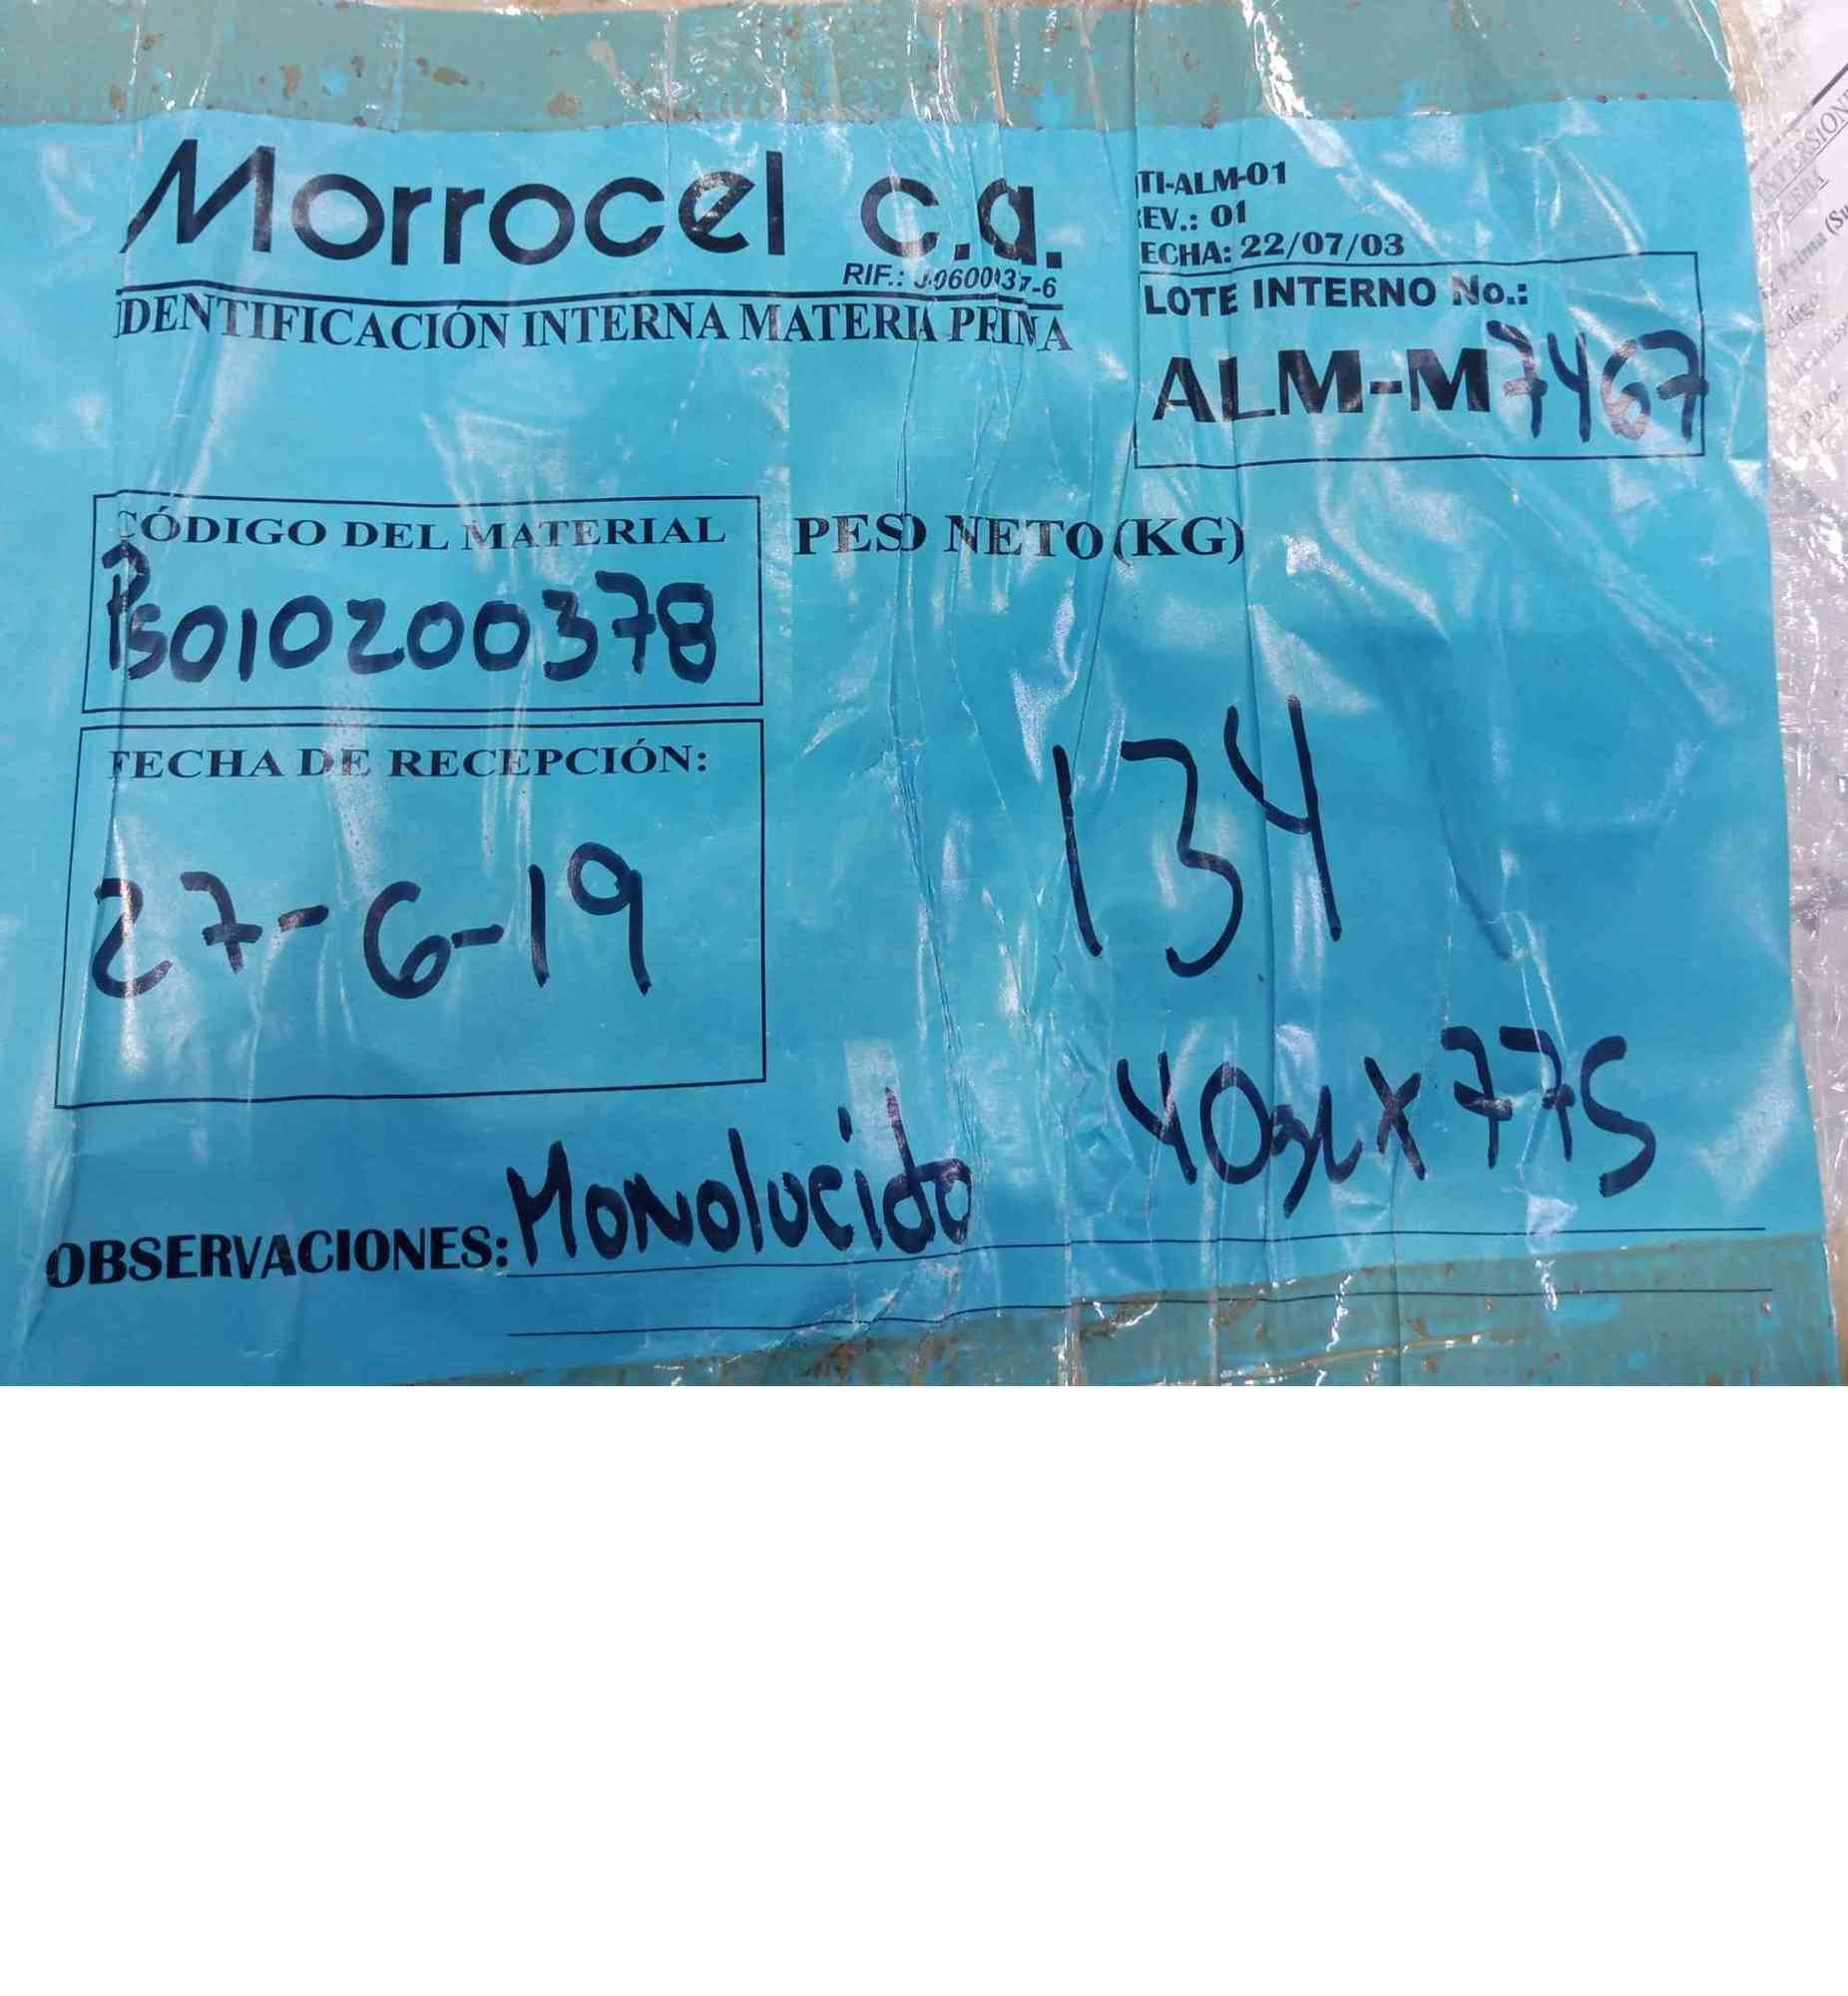 Morrocel c.a.
RIF.: J-0600137-6
IDENTIFICACIÓN INTERNA MATERIA PRIMA
TI-ALM-01
EV.: 01
ECHA: 22/07/03
LOTE INTERNO No.:
ALM-M7467
CÓDIGO DEL MATERIAL
PS010200378
PESO NETO (KG)
FECHA DE RECEPCIÓN:
27-6-19
134
40gr x 775
OBSERVACIONES: Monolucido